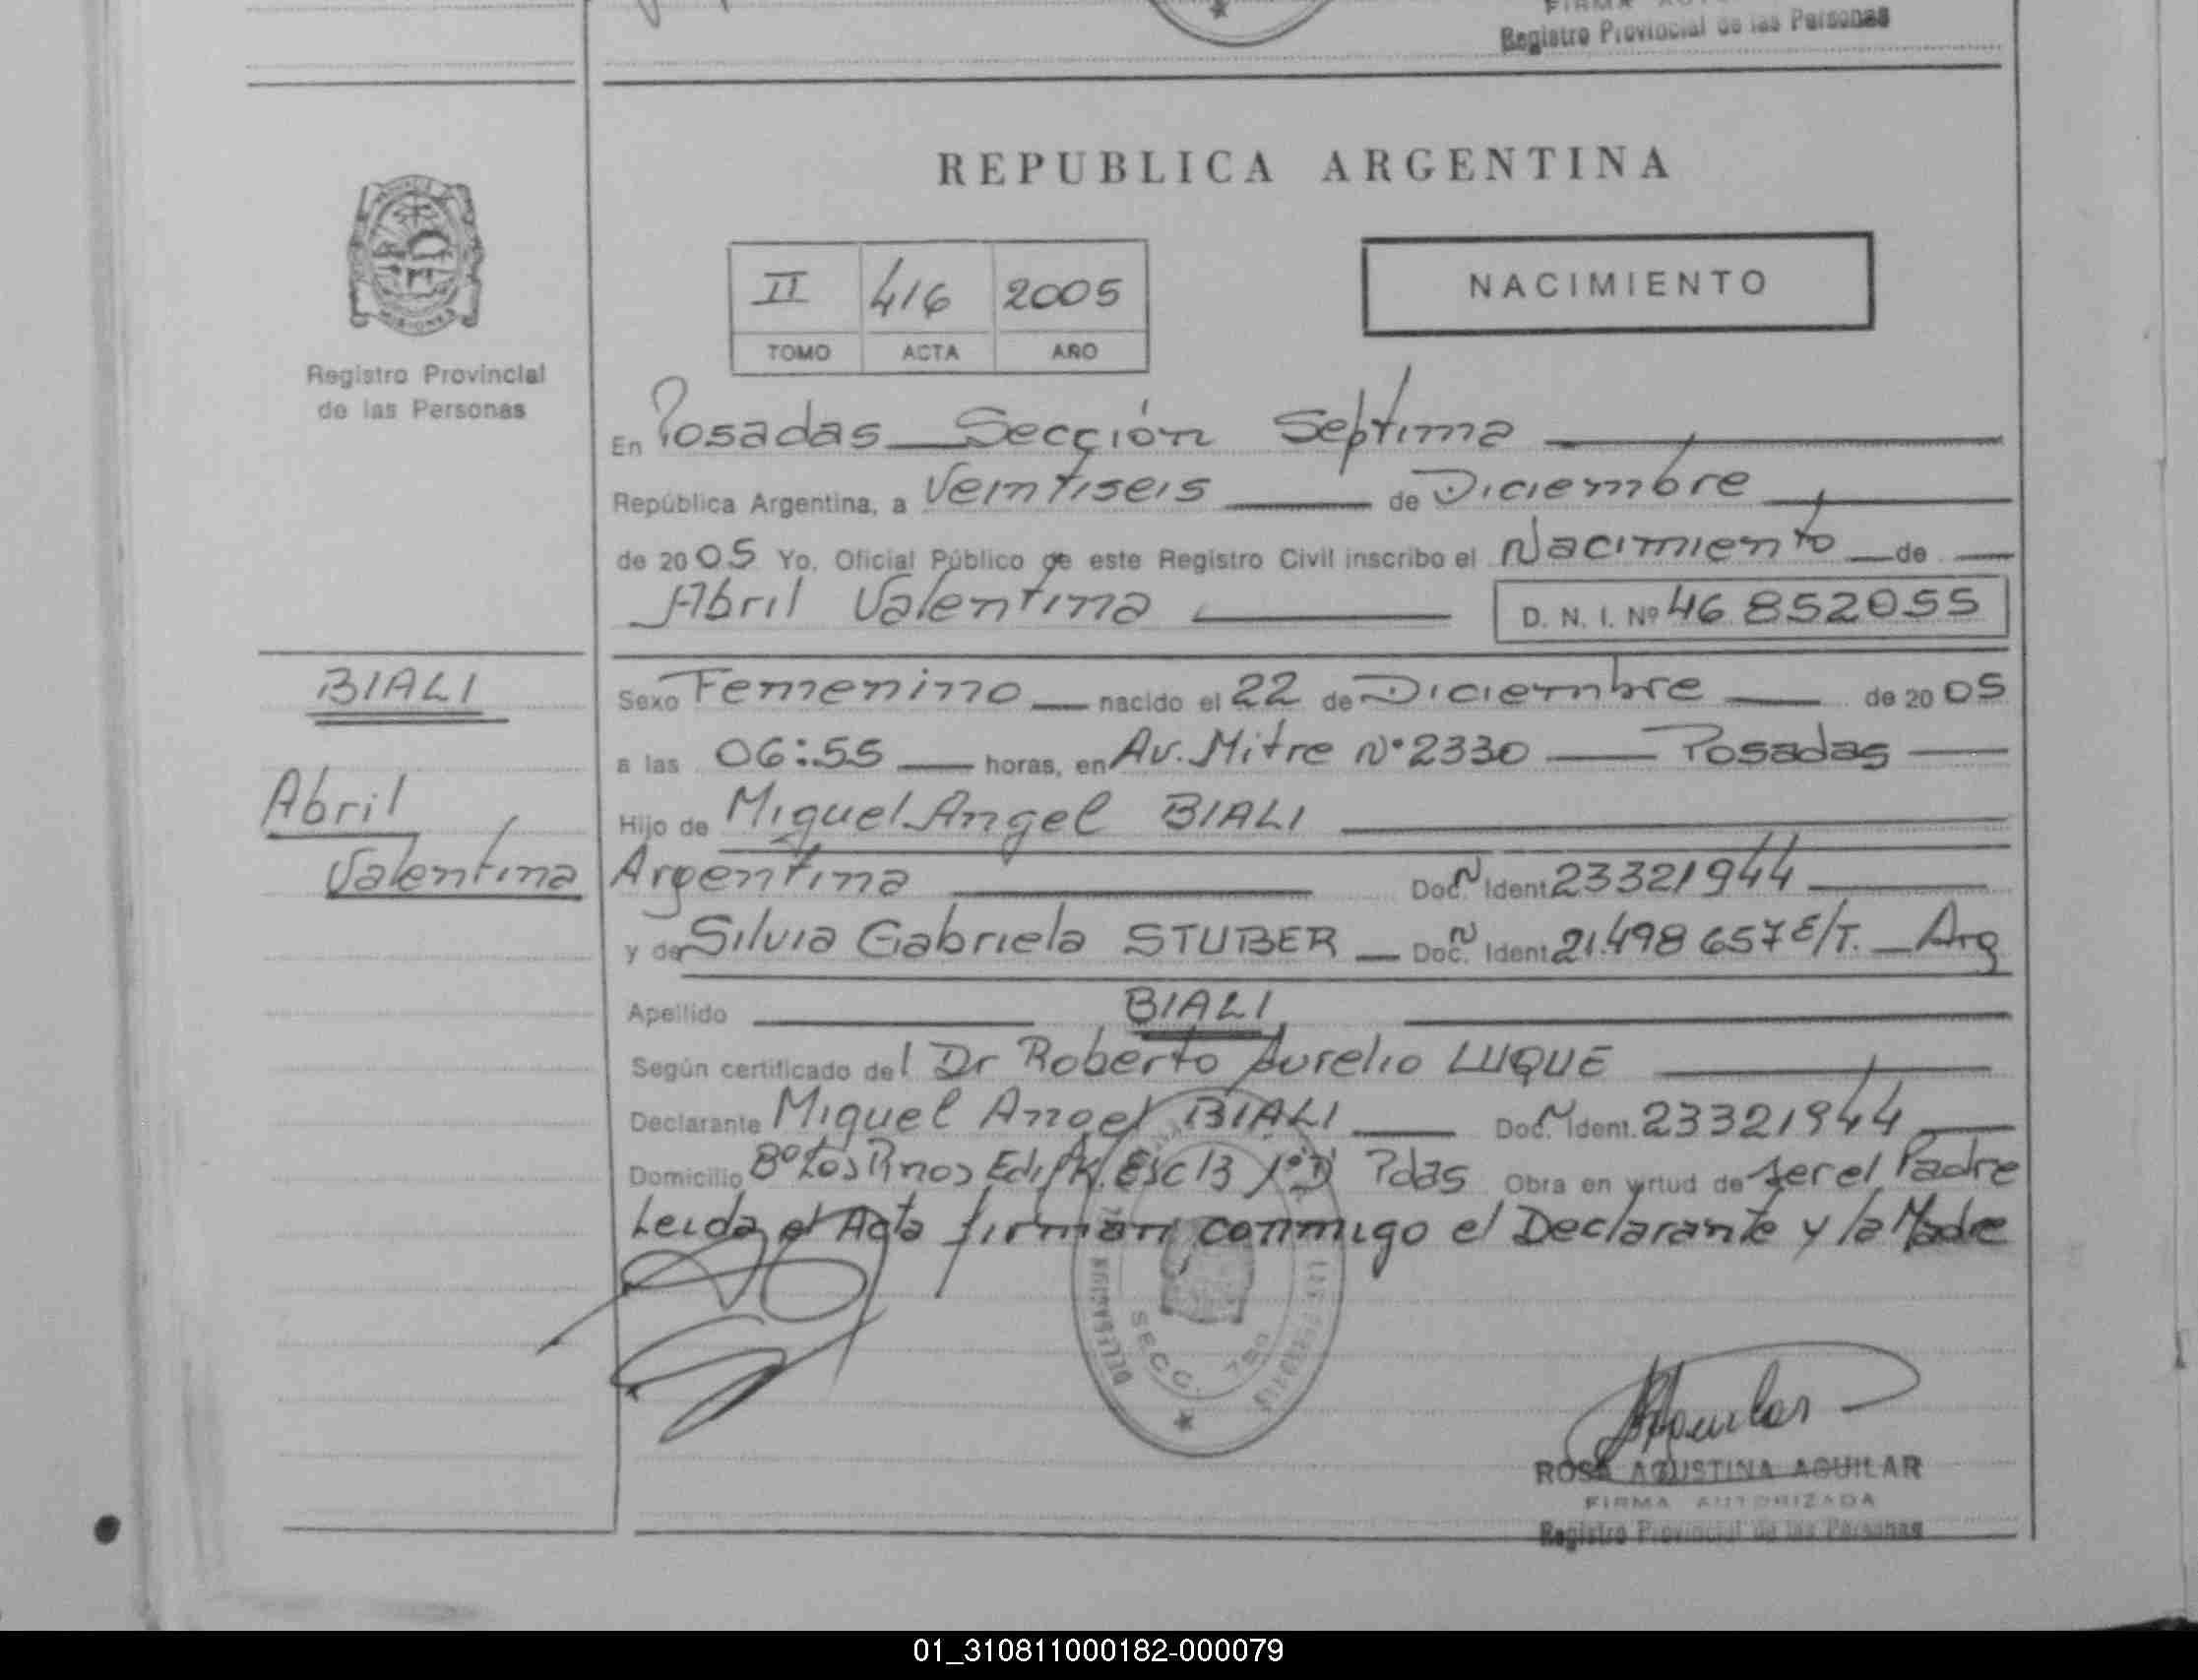 Registro Provincial de las Personas
REPUBLICA ARGENTINA
MISIONES
Registro Provincial
de las Personas
II 416 2005
TOMO ACTA AÑO
NACIMIENTO
En Posadas Sección Septima
República Argentina, a Veintiseis de Diciembre
de 2005 Yo, Oficial Público de este Registro Civil inscribo el Nacimiento de
Abril Valentina D. N. I. Nº 46.852055
BIALI
Abril
Valentina
Sexo Femenino nacido el 22 de Diciembre de 2005
a las 06:55 horas, en Av. Mitre Nº 2330 Posadas
Hijo de Miguel Angel BIALI
Argentina Doc. N Ident 23321944
y de Silvia Gabriela STUBER Doc. N Ident 21.498 657 E/T. Arg
Apellido BIALI
Según certificado del Dr Roberto Aurelio LUQUE
Declarante Miguel Angel BIALI Doc. N Ident. 23321944
Domicilio Bº Los Pinos Edif Esc 13 1º D Pdas Obra en virtud de ser el Padre
Leida el Acta firman conmigo el Declarante y la Madre
DELEGACION
SECC. 7ma
LAS PERSONAS
Aguilar
ROSA AGUSTINA AGUILAR
FIRMA AUTORIZADA
Registro Provincial de las Personas
01_310811000182-000079